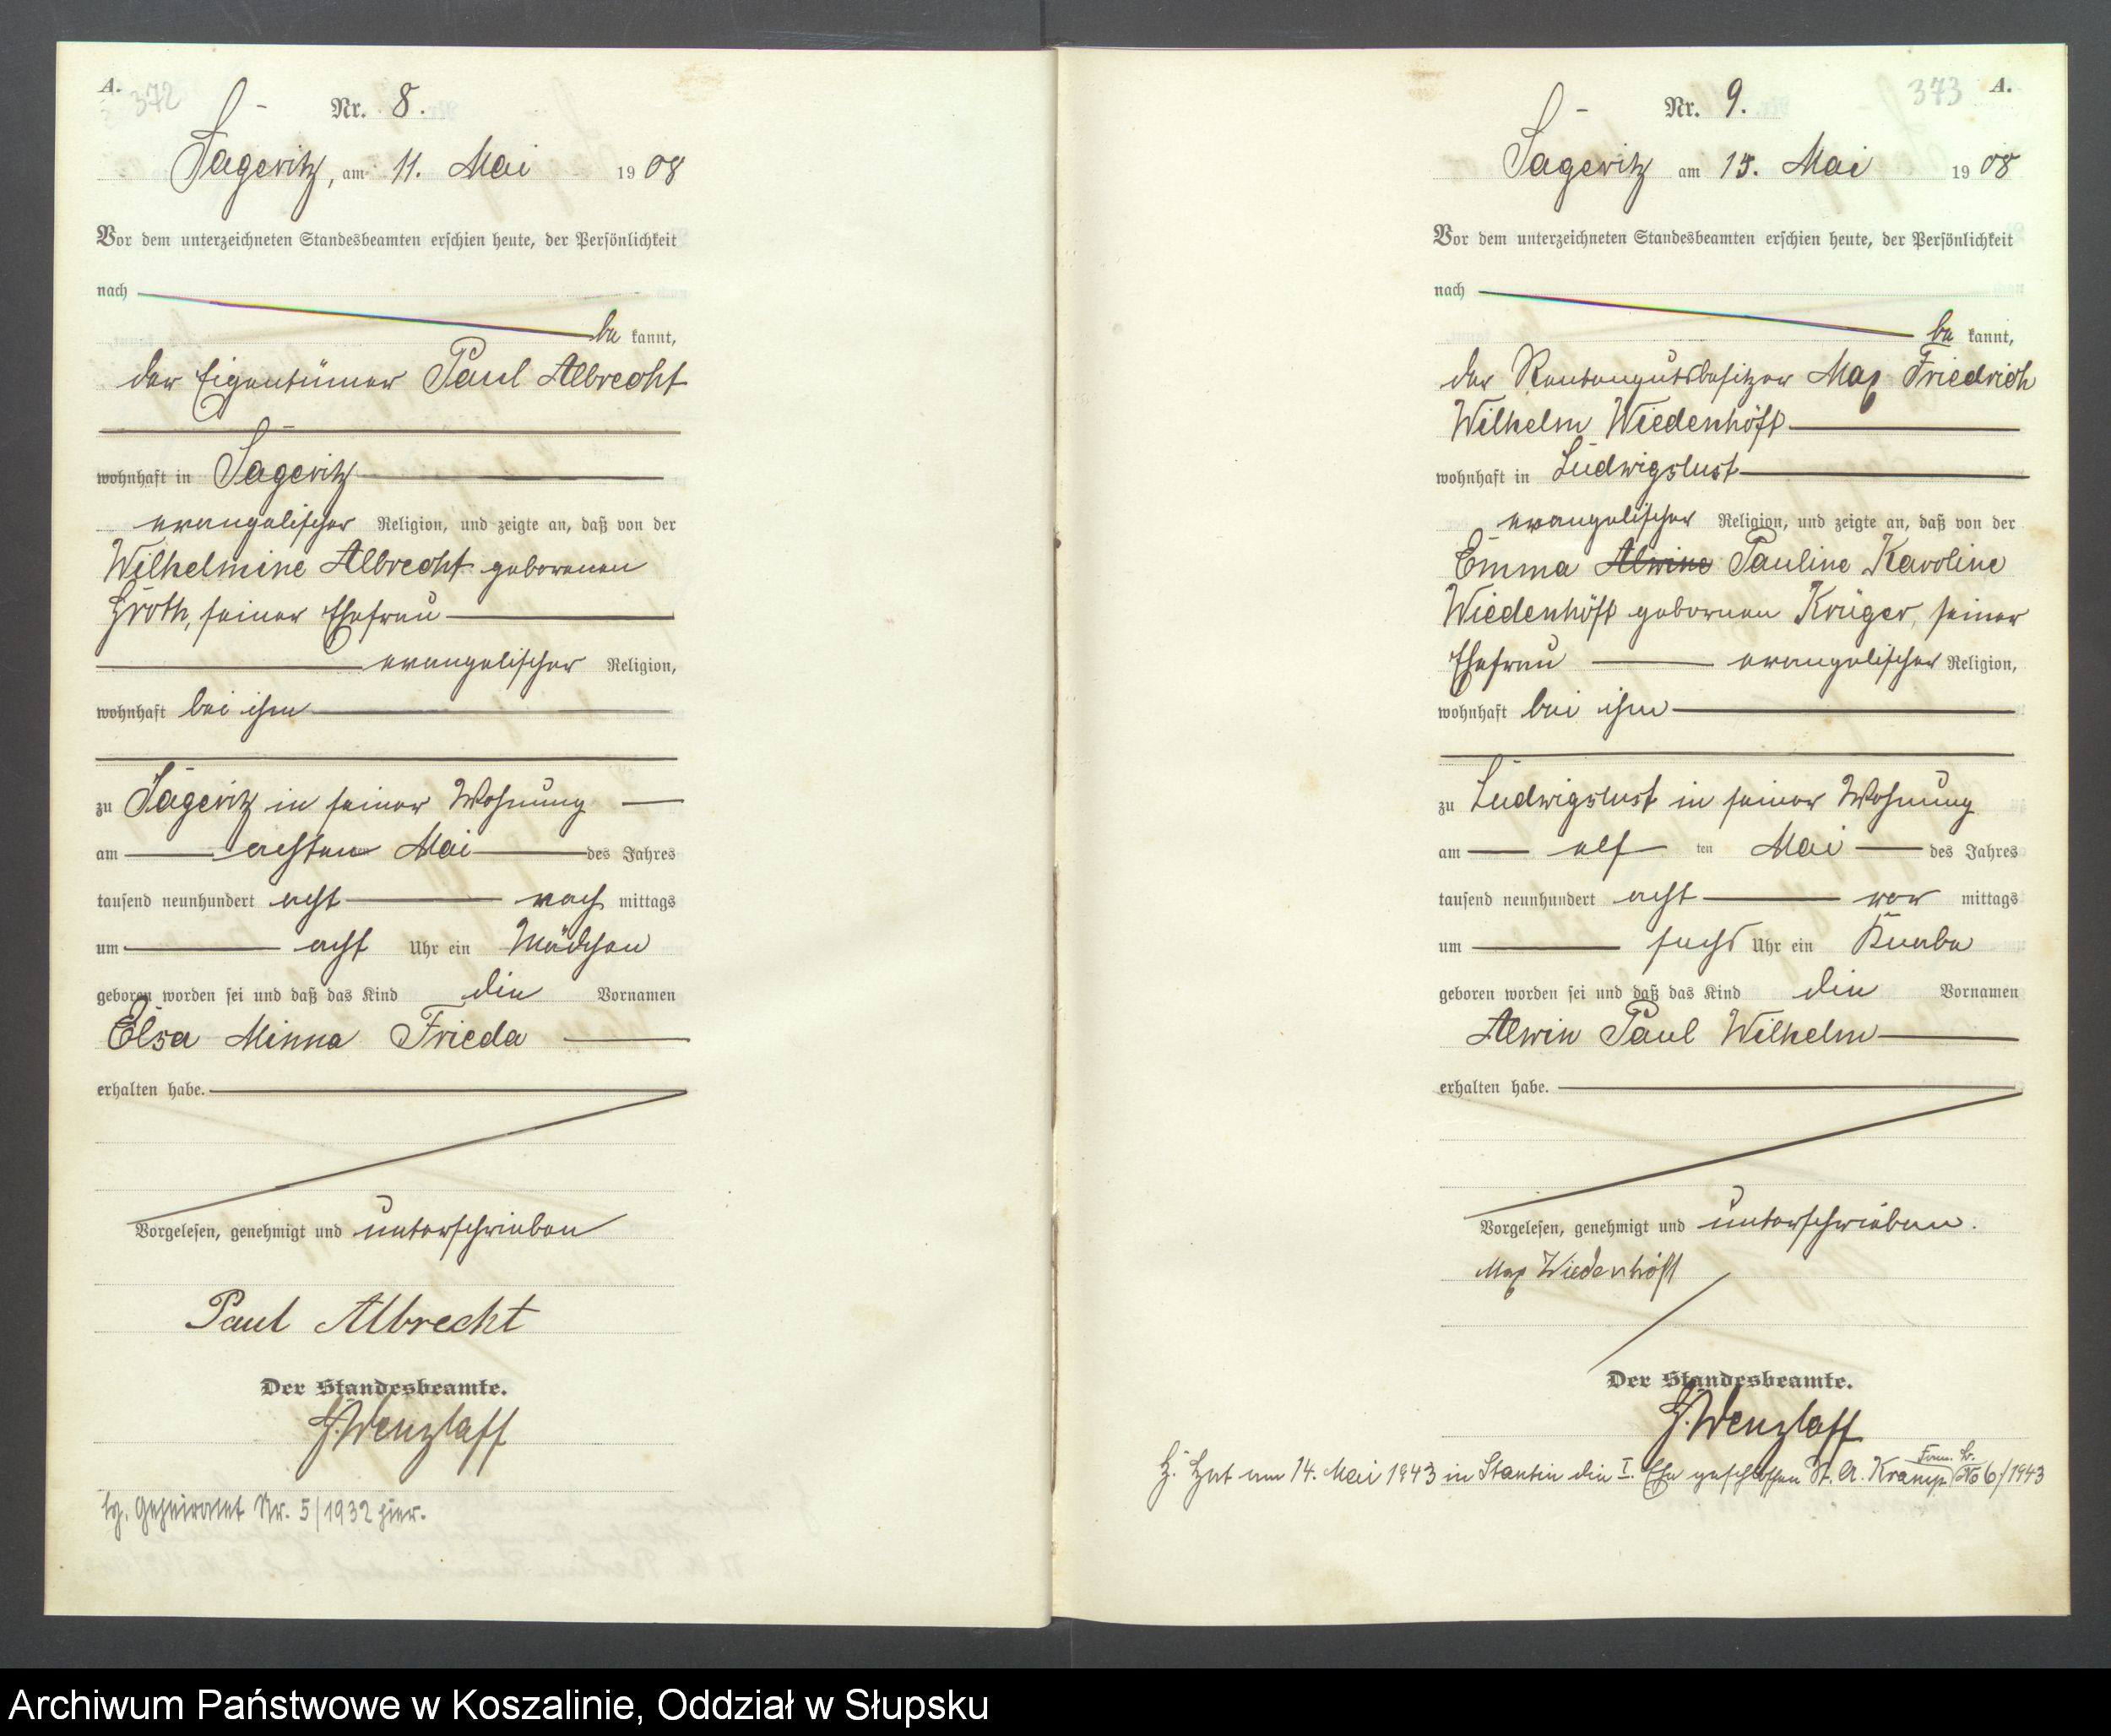 A.
372
Nr. 8.
Sageritz, am 11. Mai 1908
Vor dem unterzeichneten Standesbeamten erschien heute, der Persönlichkeit
nach
be kannt,
der Eigentümer Paul Albrecht
wohnhaft in Sageritz
evangelischer Religion, und zeigte an, daß von der
Wilhelmine Albrecht geborenen
Groth, seiner Ehefrau
evangelischer Religion,
wohnhaft bei ihm
zu Sageritz in seiner Wohnung
am achten Mai des Jahres
tausend neunhundert acht nach mittags
um acht Uhr ein Mädchen
geboren worden sei und daß das Kind die Vornamen
Elsa Minna Frieda
erhalten habe.
Vorgelesen, genehmigt und unterschrieben
Paul Albrecht
Der Standesbeamte.
H. Wenzlaff
Geheiratet Nr. 5/1932 hier.
373
A.
Nr. 9.
Sageritz am 15. Mai 1908
Vor dem unterzeichneten Standesbeamten erschien heute, der Persönlichkeit
nach
be kannt,
der Rentengutsbesitzer Max Friedrich
Wilhelm Wiedenhöft
wohnhaft in Ludwigslust
evangelischer Religion, und zeigte an, daß von der
Emma Alwine Pauline Karoline
Wiedenhöft gebornen Krüger, seiner
Ehefrau evangelischer Religion,
wohnhaft bei ihm
zu Ludwigslust in seiner Wohnung
am elf ten Mai des Jahres
tausend neunhundert acht vor mittags
um sechs Uhr ein Knabe
geboren worden sei und daß das Kind die Vornamen
Alwin Paul Wilhelm
erhalten habe.
Vorgelesen, genehmigt und unterschrieben.
Max Wiedenhöft
Der Standesbeamte.
H. Wenzlaff
Hat am 14. Mai 1943 in Stantin die I. Ehe geschlossen St. A. Kramp No 6/1943
Archiwum Państwowe w Koszalinie, Oddział w Słupsku